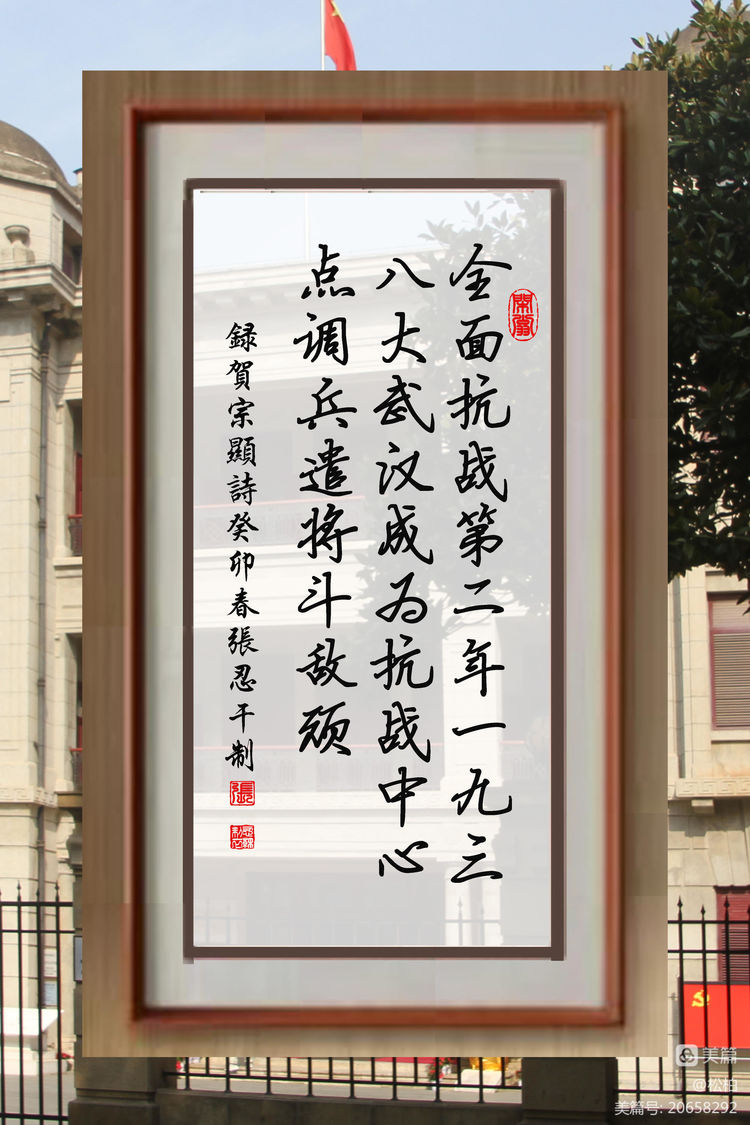 全面抗战第二年一九三
八大武汉成为抗战中心
点调兵遣将斗敌顽
録賀宗顯詩癸卯春張忍干制
張
美篇
@松柏
美篇号: 20658292